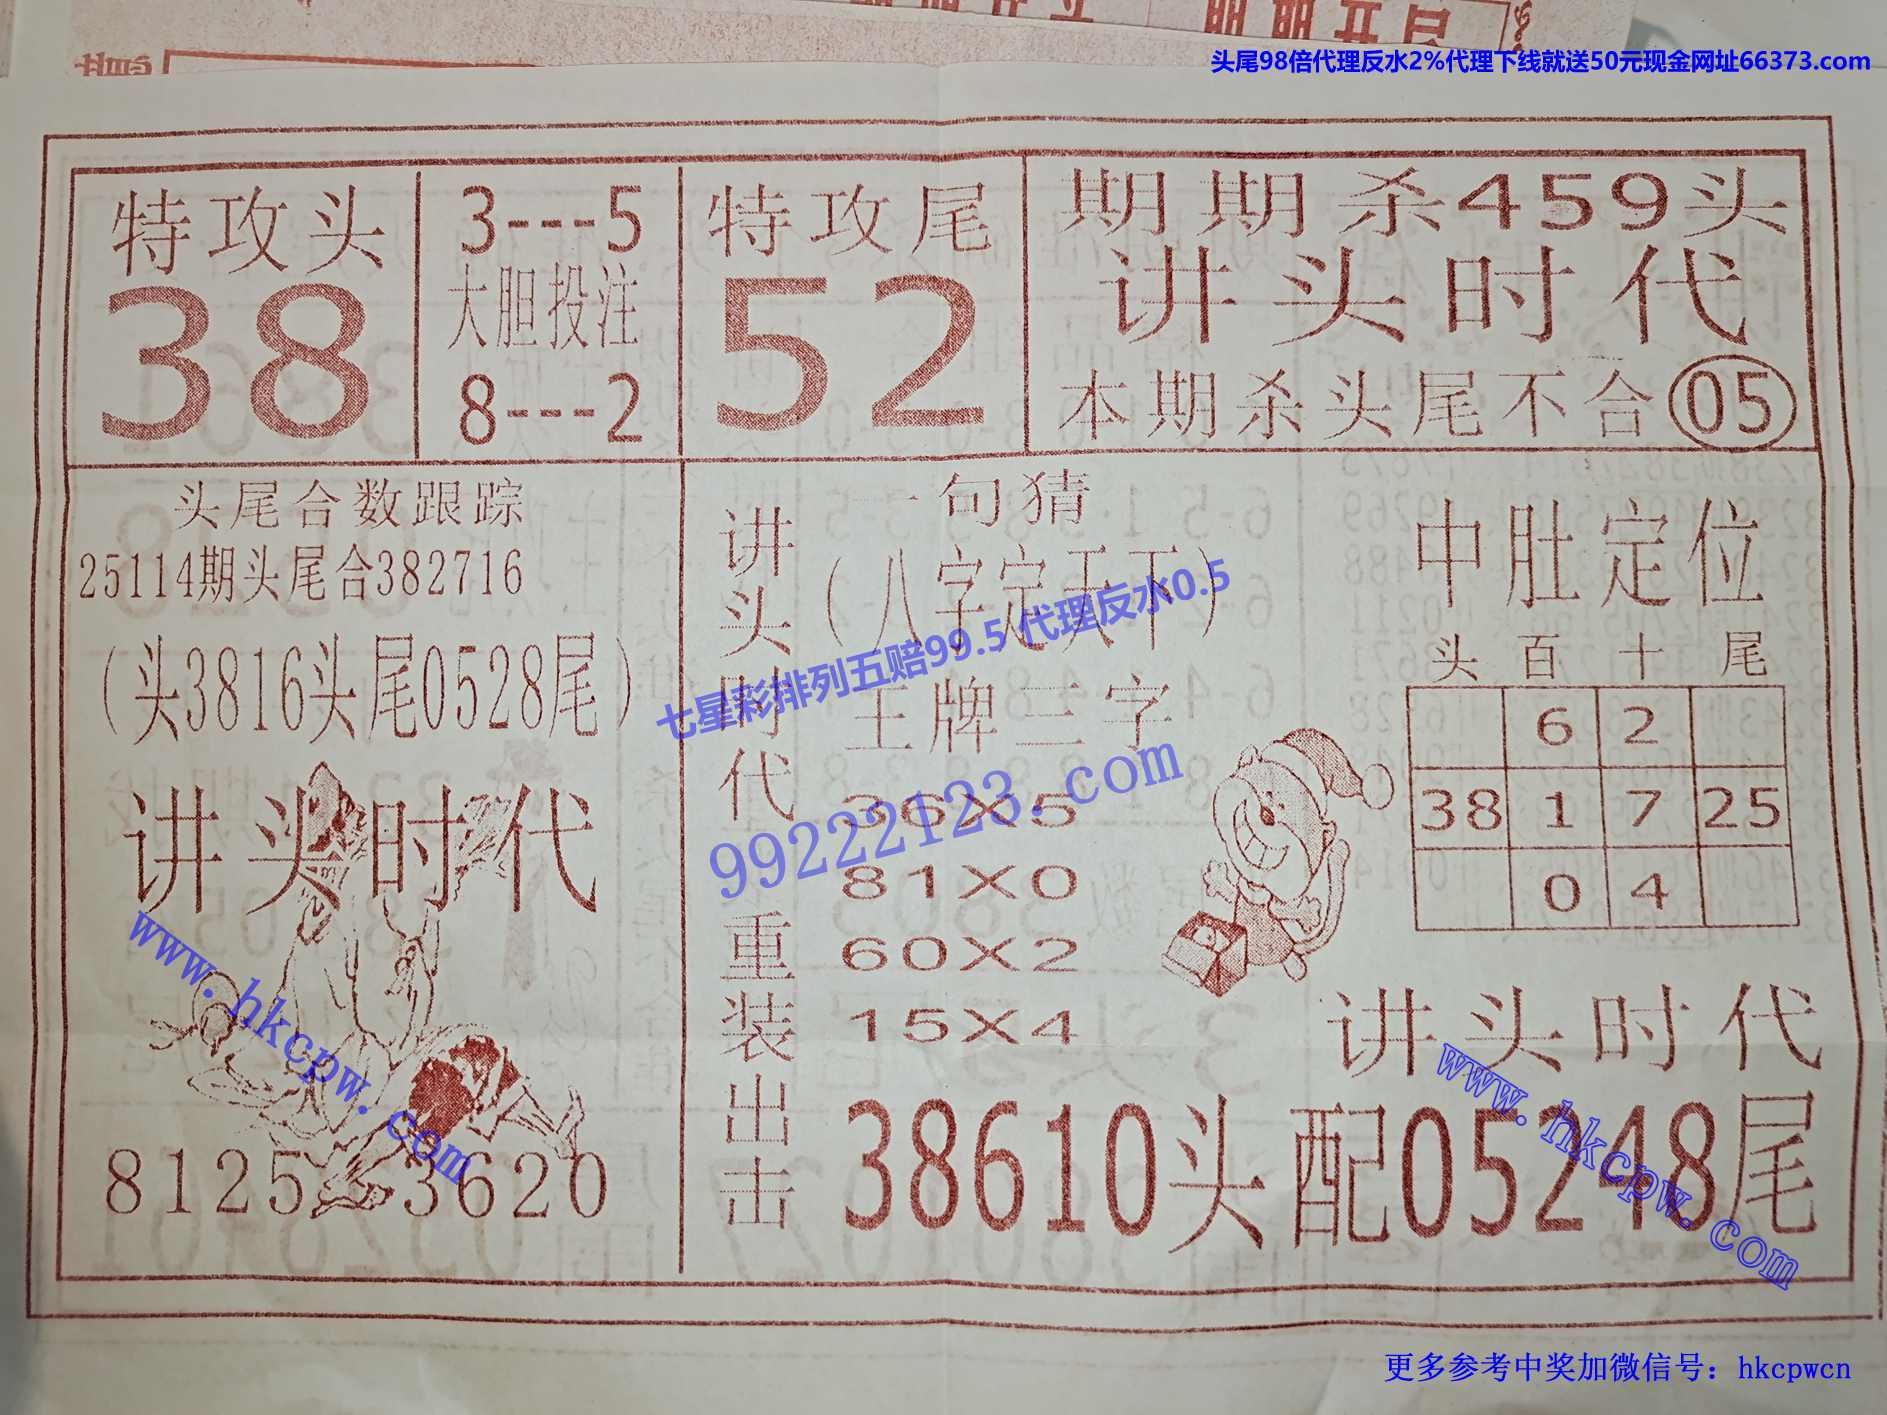 头尾98倍代理反水2%代理下线就送50元现金网址66373.com
特攻头
38
3---5
大胆投注
8---2
特攻尾
52
期期杀459头
讲头时代
本期杀头尾不合05
头尾合数跟踪
25114期头尾合382716
(头3816头尾0528尾)
讲头时代
8125 3620
讲头时代重装出击
一句猜
(八字定天下)
王牌三字
36X5
81X0
60X2
15X4
中肚定位
头百十尾
6 2
38 1 7 25
0 4
讲头时代
38610头配05248尾
七星彩排列五赔99.5代理反水0.5
99222123.com
www.hkcpw.com
www.hkcpw.com
更多参考中奖加微信号：hkcpwcn